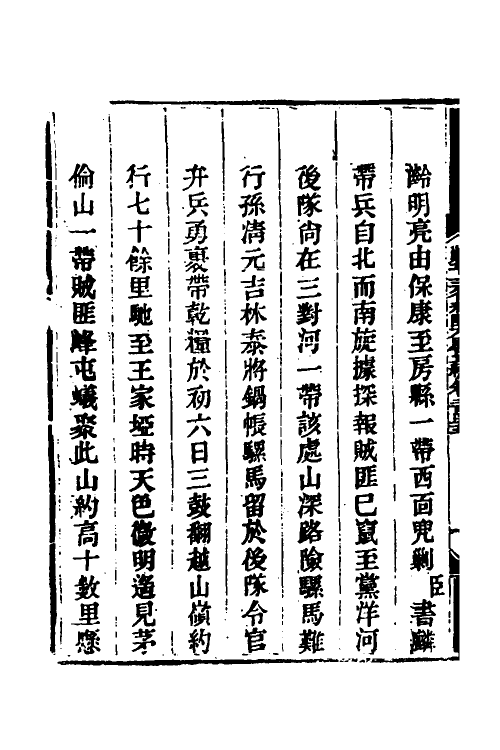 齡明亮由保康至房縣一帶西面兜剿臣書麟
帶兵自北而南旋據探報賊匪已竄至黨洋河
後隊尚在三對河一帶該處山深路險騾馬難
行孫清元吉林泰將鍋帳騾馬留於後隊令官
弁兵勇裹帶乾糧於初六日三鼓翻越山嶺約
行七十餘里馳至王家埡時天色微明遙見茅
倫山一帶賊匪蜂屯蟻聚此山約高十數里懸